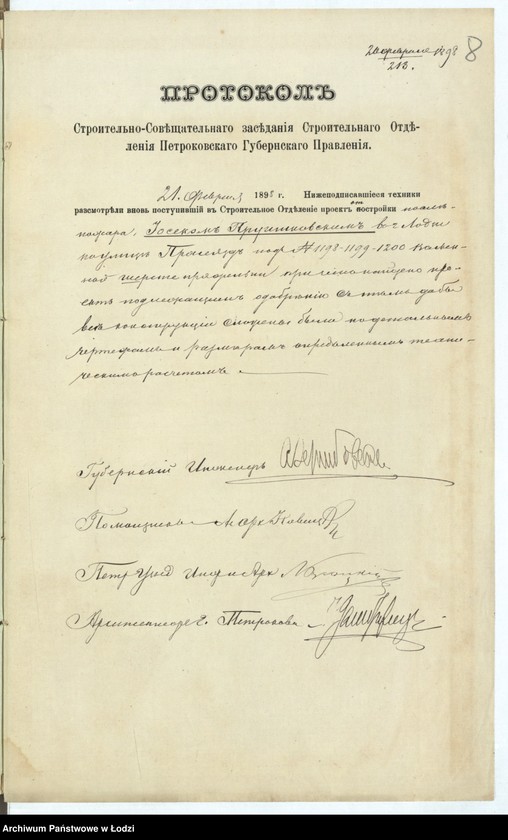 20 февраля 1898
213.
8
ПРОТОКОЛЪ
Строительно-Совѣщательнаго засѣданія Строительнаго Отдѣ-
ленія Петроковскаго Губернскаго Правленія.
21 Февраля 1898 г. Нижеподписавшіеся техники
разсмотрѣли вновь поступившій въ Строительное Отдѣленіе проектъ отстройки послѣ
пожара, Іосекомъ Прушиновскимъ въ г. Лодзи
по улицѣ подъ № 1198-1199-1200 камен-
ной шерстепрядильни при семъ найдено про-
ектъ подлежащимъ одобренію съ тѣмъ дабы
всѣ конструкціи сложены были по детальнымъ
чертежамъ и размѣрамъ опредѣленнымъ техни-
ческимъ расчетомъ.
Губернскій Инженеръ
Помощникъ Арх
Петр Уѣзд Инж и Арх
Архитекторъ г. Петрокова
Archiwum Państwowe w Łodzi